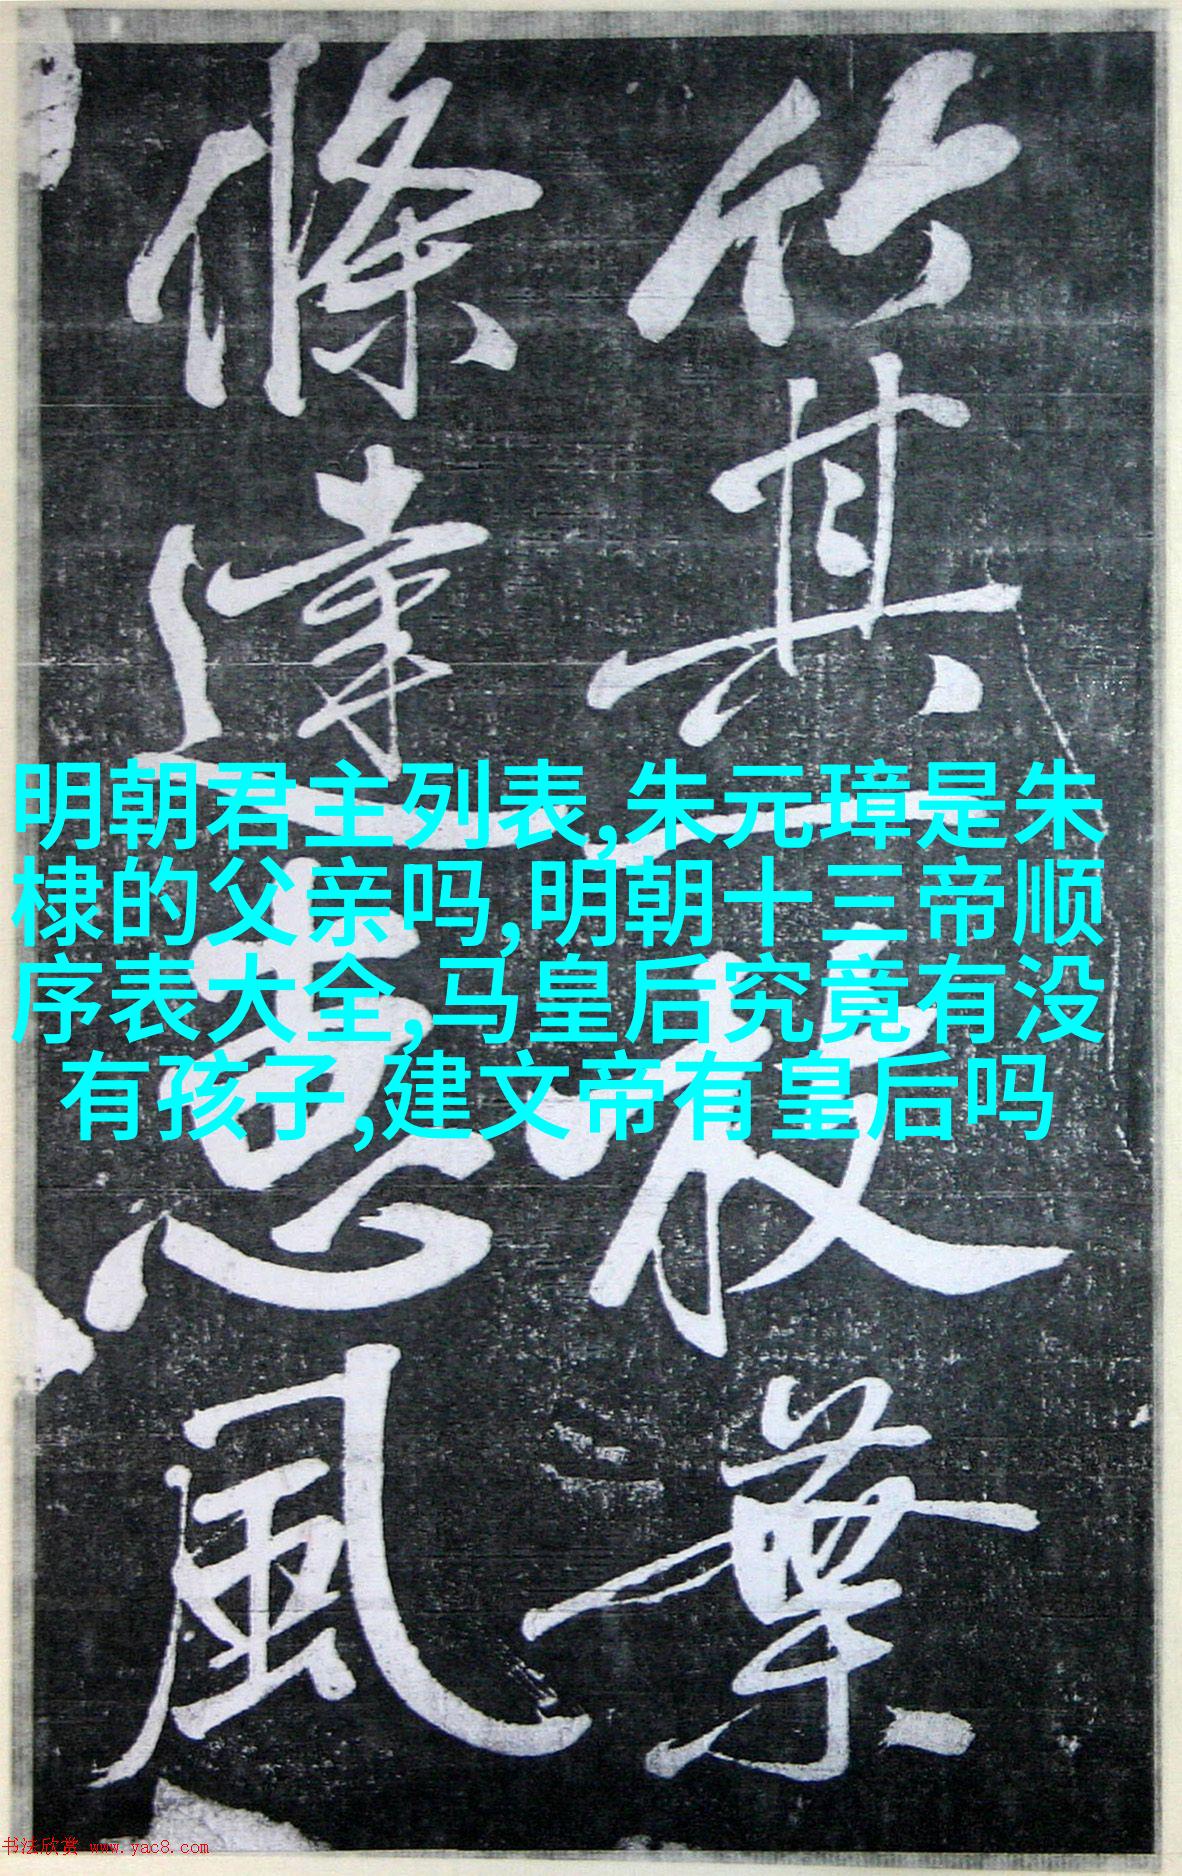 其枝葉
條達惠風
明朝君主列表,朱元璋是朱
棣的父亲吗,明朝十三帝顺
序表大全,马皇后究竟有没
有孩子,建文帝有皇后吗
书法欣赏 www.yac8.com